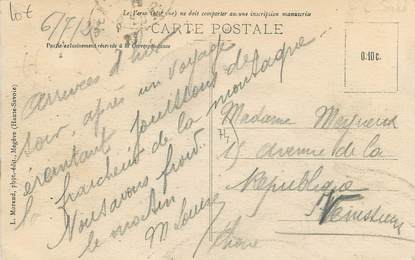 lot
Le Verso (côté vue) ne doit comporter aucune inscription manuscrite
CARTE POSTALE
Partie exclusivement réservée à la Correspondance
6/7/23
arrivées d'hier
soir, après un voyage
éreintant jouissons de
la fraicheur de la montagne
Nous avons froid
le matin
M Louise
0.40 c.
Madame
74
15 avenue de la
République
Vénissieux
Rhône
L. Morand, phot.-édit., Megève (Haute-Savoie)